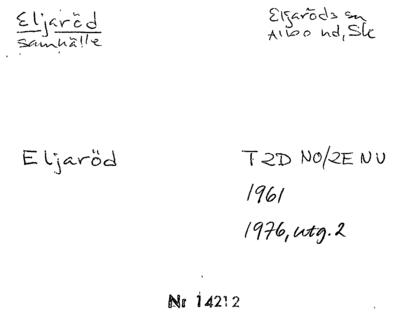 Eljaröd
samhälle
Eljaröds sn
Albo hd, Sk
Eljaröd
T 2D NO/2E NV
1961
1976, utg. 2
Nr 14212